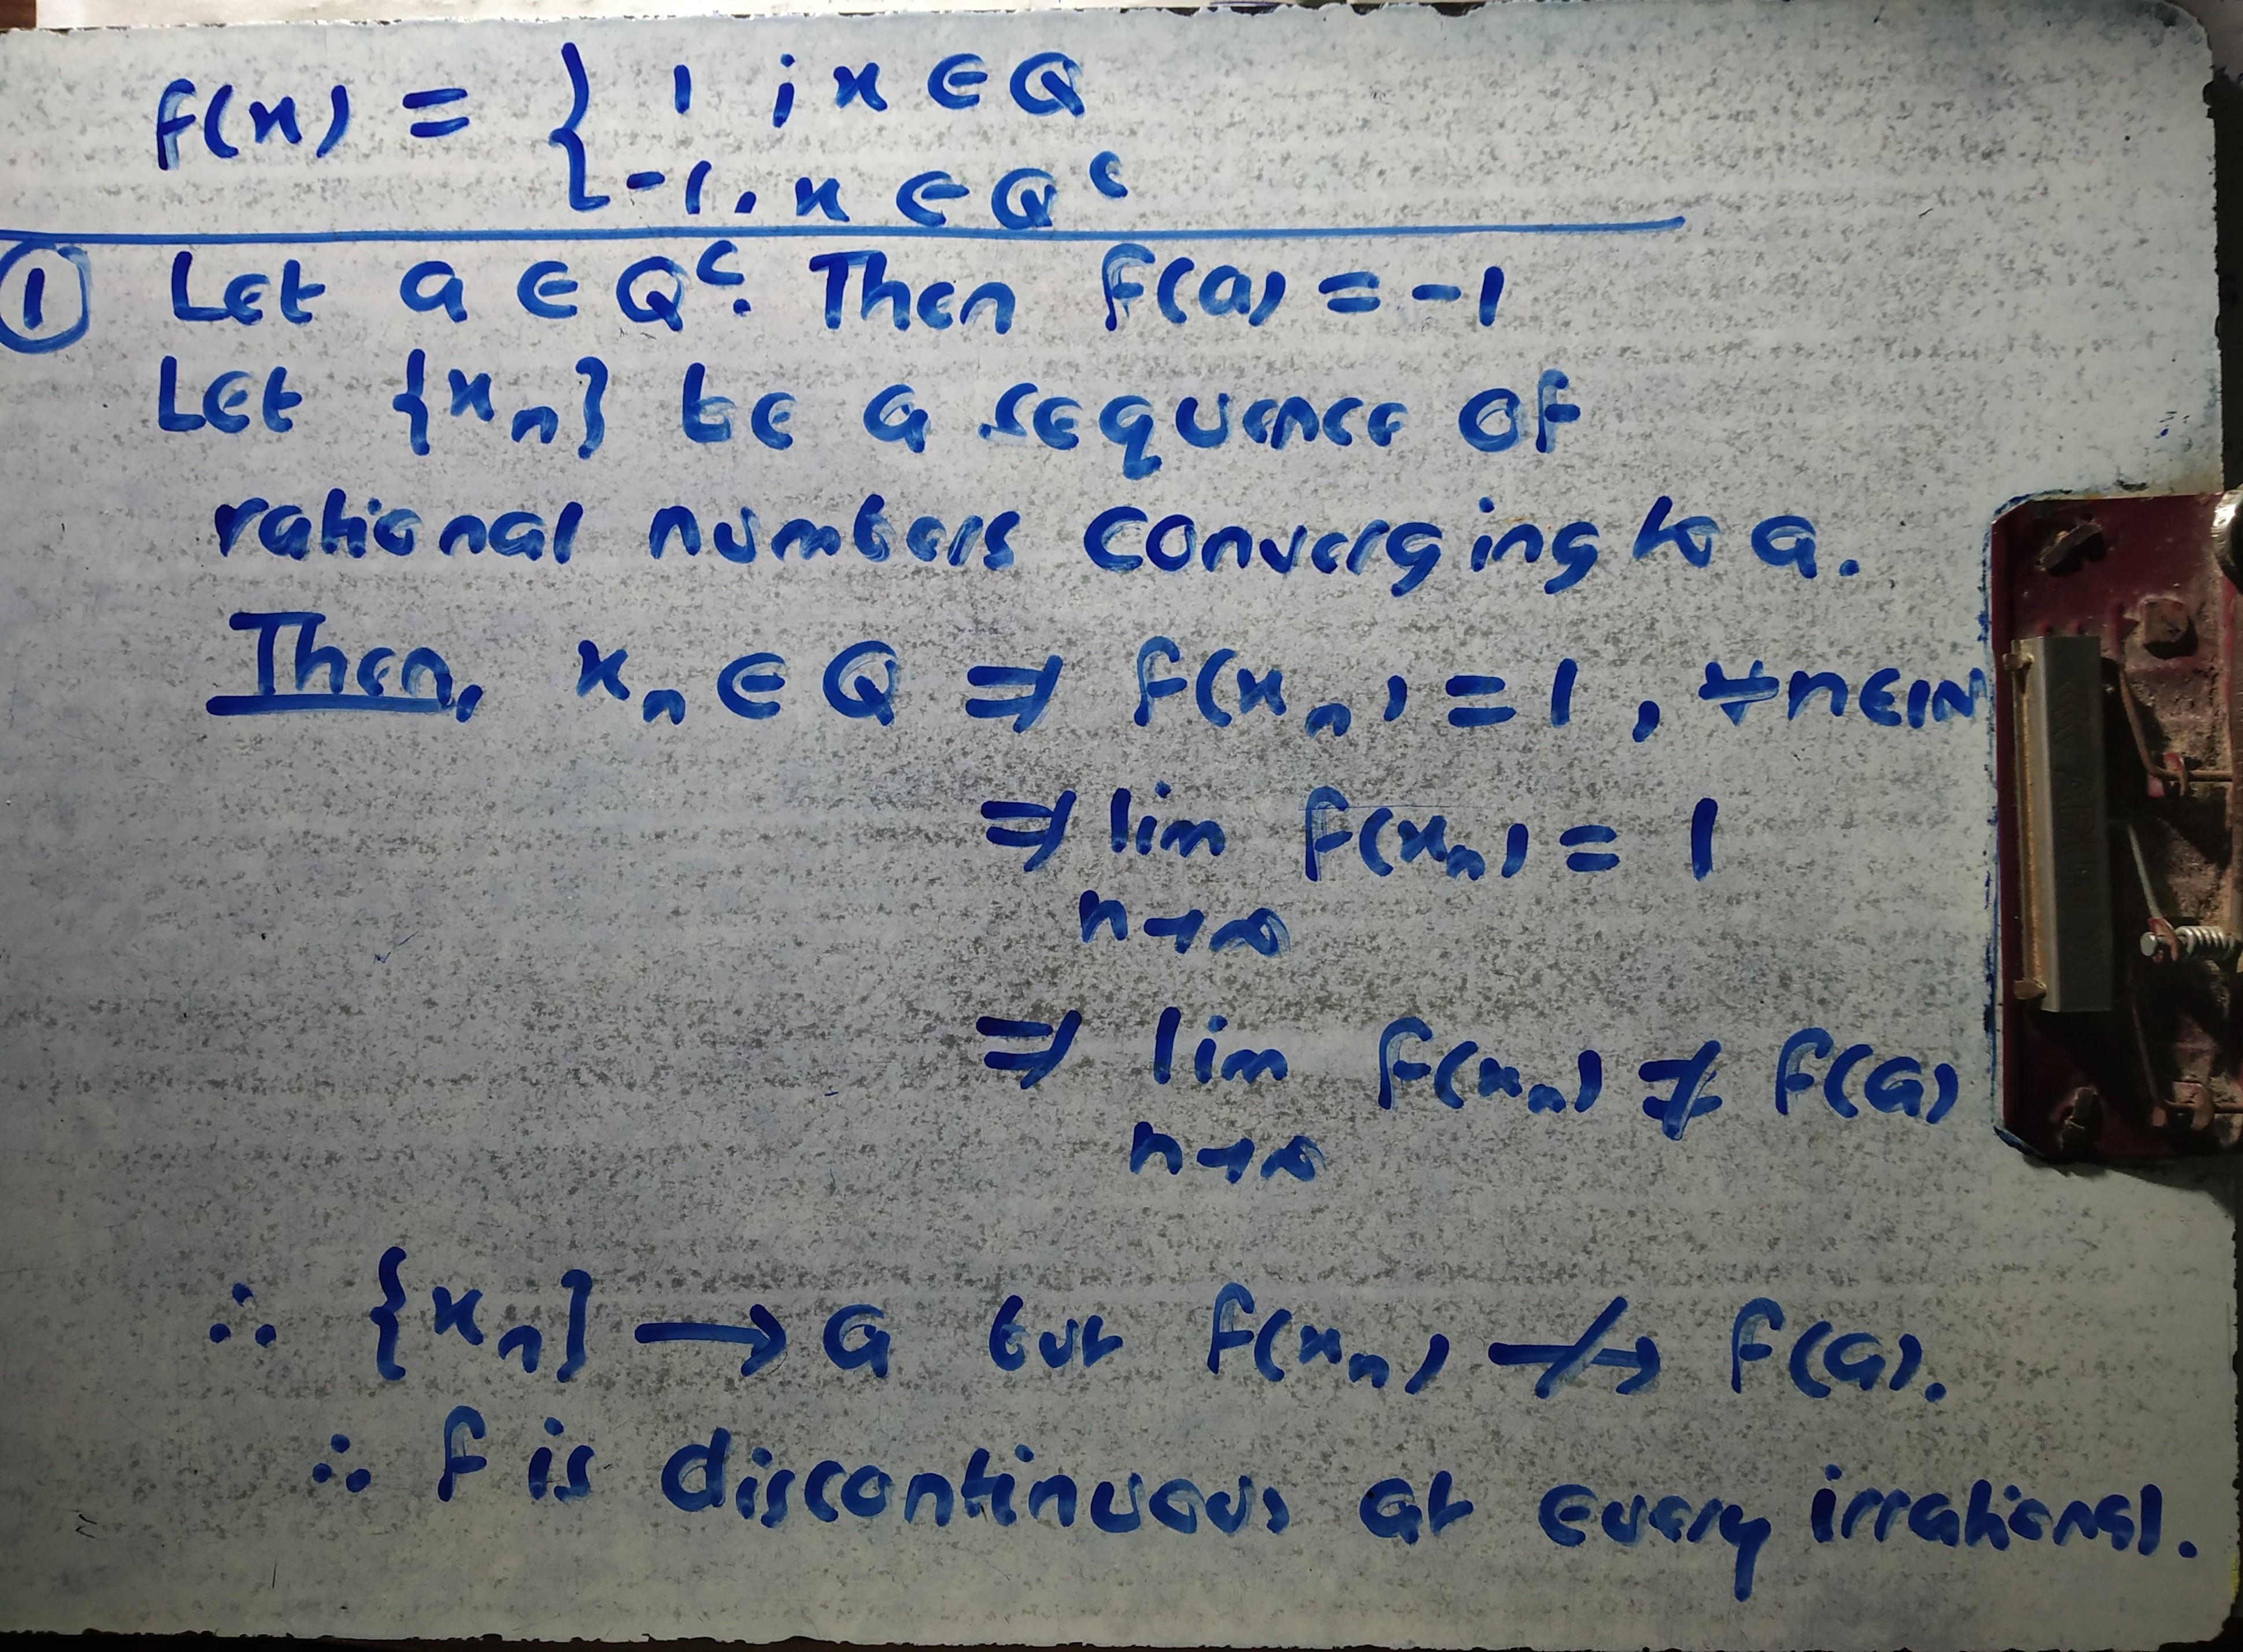 f(x) = { 1 ; x ∈ Q
-1, x ∈ Q^c
① Let a ∈ Q^c. Then f(a) = -1
Let {x_n} be a sequence of
rational numbers converging to a.
Then, x_n ∈ Q ⇒ f(x_n) = 1, ∀ n ∈ ℕ
⇒ lim f(x_n) = 1
n→∞
⇒ lim f(x_n) ≠ f(a)
n→∞
∴ {x_n} → a but f(x_n) ↛ f(a).
∴ f is discontinuous at every irrational.